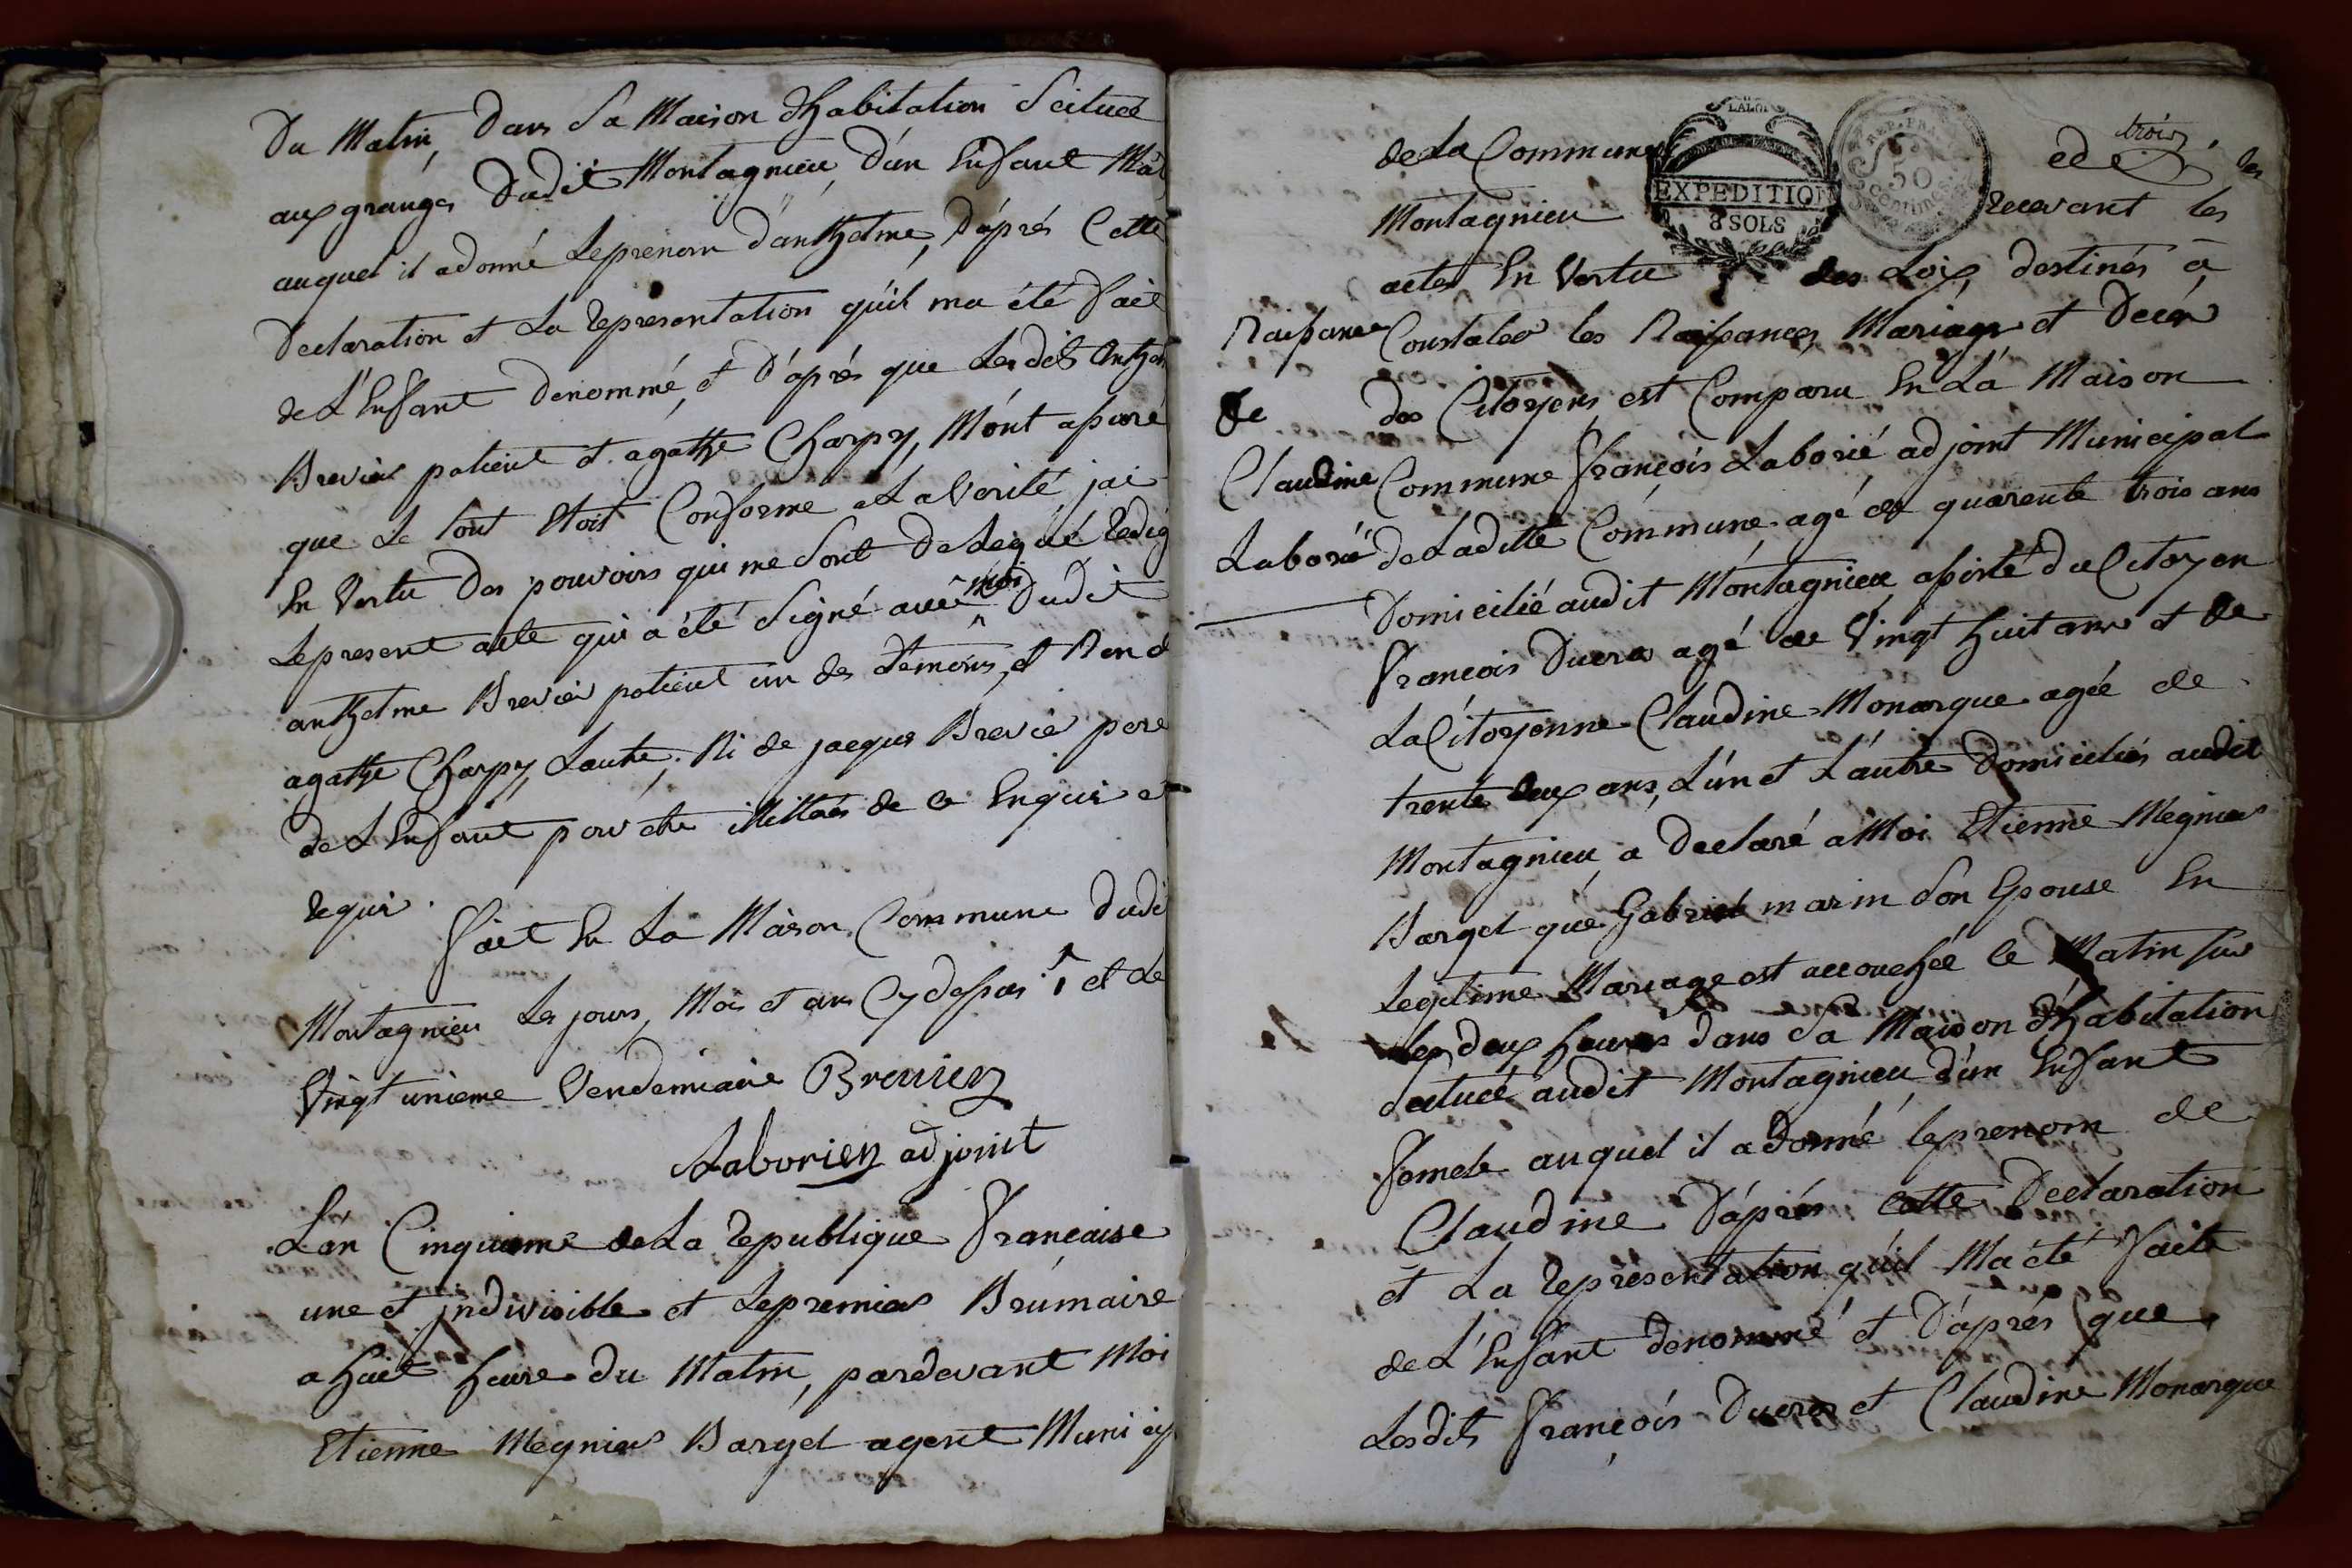 Du Matin, Dans Sa Maison d'habitation Scituée
aux granges Dudit Montagnieu, D'un Enfant Mâl
auquel il adonné Leprenom d'anthelme, D'après Cette
Declaration et La representation qu'il ma été fait
de L'Enfant denommé, et D'après que Lesdits Anthel
Brevier patient et agathe Charpy, M'ont assuré
que Le tout Etoit Conforme a La Verité jai
En Vertu Des pouvoirs qui me Sont Delegué Redig
Lepresent acte qui a été Signé avec moi Dudit
anthelme Brevier patient un des temoins, et Non d
agathe Charpy, Lautre, Ni de jacques Brevier pere
de L'Enfant pour etre illittrés de ce Enquis et
requis.
fait En La Maison Commune dudi
Montagnieu Les jours, Mois et an Cy dessus et Le
Vingt unieme Vendemiaire Brevier
Laborier adjoint
L'an Cinquieme de La Republique française
une et jndivisible et Lepremier Brumaire
a huit heure du Matin, pardevant Moi
Etienne Megnier Barget agent Municip
de La Commune EXPEDITION 8 SOLS LA LOI REP. FRA. 50 Centimes trois
Montagnieu recevant les
actes En Vertu des Loix, destinés à
Naissance Constater les Naissances, Mariages et Décès
de des Citoyens est Comparu En La Maison
Claudine Commune François Laborié adjoint Municipal
Laborié de Laditte Commune agé de quarente trois ans
Domicilié audit Montagnieu, assisté du Citoyen
François Ducros agé de Vingt huit ans et de
La Citoyenne Claudine Monarque agée de
trente deux ans, L'un et L'autre Domiciliés audit
Montagnieu, a Declaré a Moi Etienne Megnier
Barget que Gabriel marin Son Epouse En
Legitime Mariage est accouchée le Matin sur
les deux heures dans Sa Maison d'habitation
Scituée audit Montagnieu, d'un Enfant
femele auquel il a Donné leprenom de
Claudine D'après cette Declaration
et La representation qu'il Ma été faite
de L'Enfant denommé et D'après que
Lesdits François Ducros et Claudine Monarque